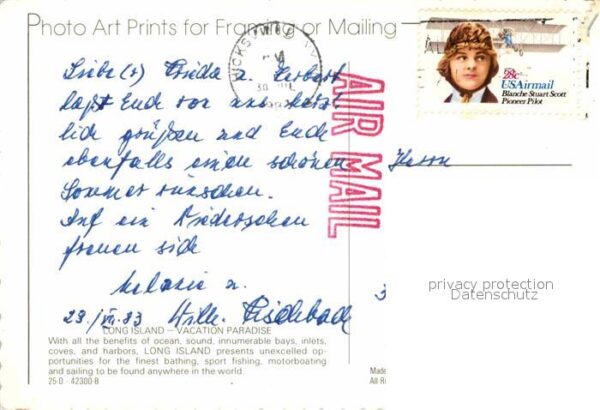 Photo Art Prints for Framing or Mailing
HICKSVILLE
30
28c
USAirmail
Blanche Stuart Scott
Pioneer Pilot
AIR MAIL
Liebe(r) Frieda u. Herbert
laßt Euch von uns herz-
lich grüßen und Euch
ebenfalls einen schönen
Sommer wünschen.
Auf ein Wiedersehen
freuen sich
Melanie u.
29./VII.83 Willi Fischbach
Herrn
privacy protection
Datenschutz
LONG ISLAND – VACATION PARADISE
With all the benefits of ocean, sound, innumerable bays, inlets,
coves, and harbors, LONG ISLAND presents unexcelled op-
portunities for the finest bathing, sport fishing, motorboating
and sailing to be found anywhere in the world.
25 D - 42300-B
Made
All Ri